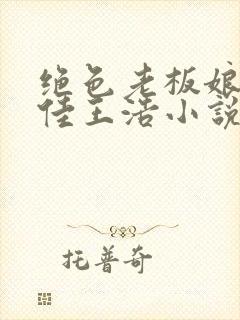 绝色老板娘
佳王浩小說
托普奇